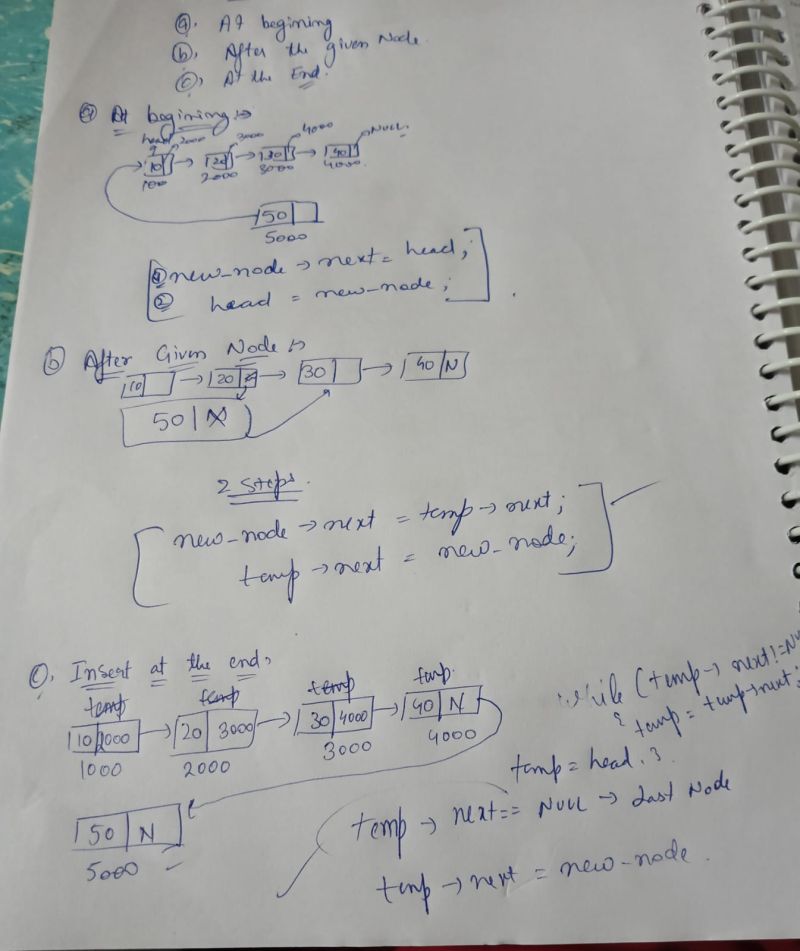 (a). At begining
(b). After the given Node.
(c), At the End.
(a) At begining :→
head 2000 3000 4000 NULL.
10 → 20 → 30 → 40
1000 2000 3000 4000.
50
5000
① new_node → next = head;
② head = new_node;
(b) After Given Node :→
10 → 20 → 30 → 40 | N
50 | N
2 Steps.
new_node → next = temp → next;
temp → next = new_node;
(c). Insert at the end:
temp temp temp temp.
10 | 2000 → 20 | 3000 → 30 | 4000 → 40 | N
1000 2000 3000 4000
while (temp → next != Nu
{ temp = temp → next;
temp = head. }
50 | N
5000
temp → next == NULL → Last Node
temp → next = new_node.